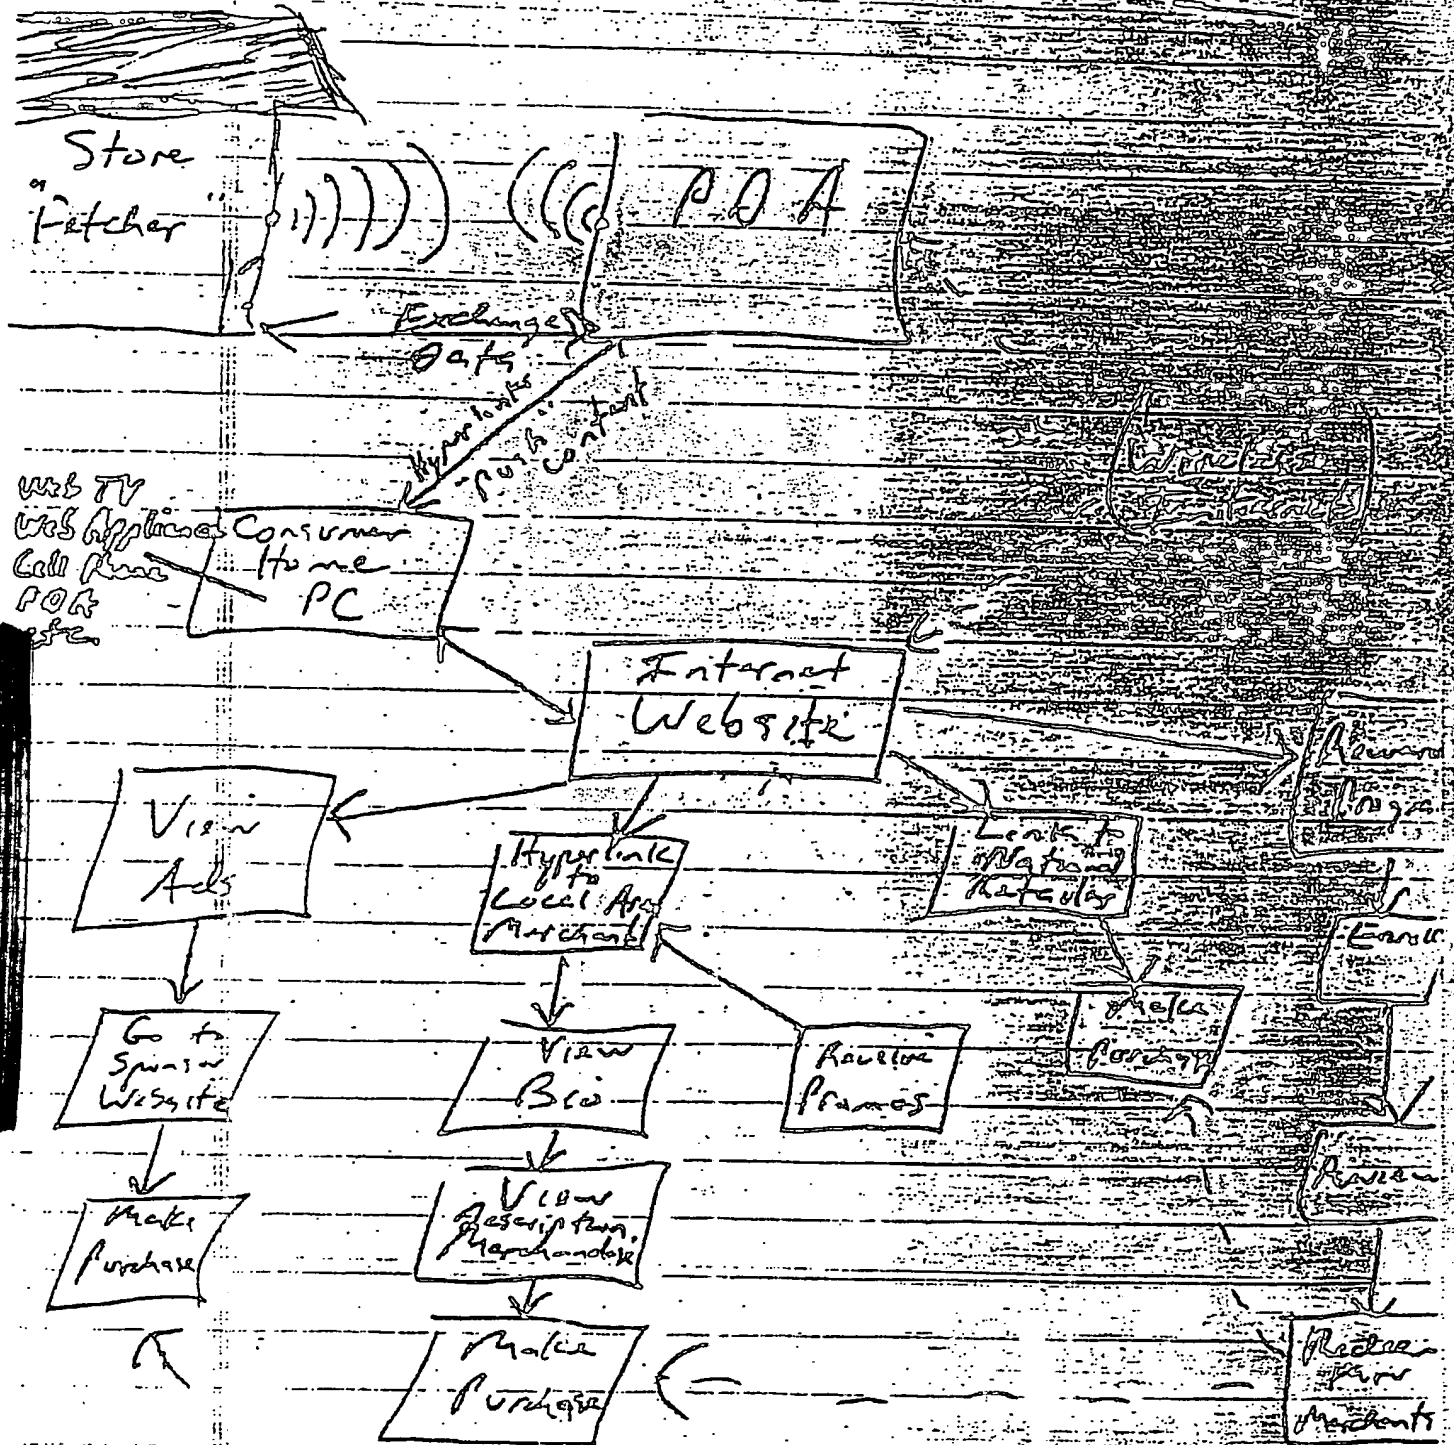 Store
"Fetcher"
PDA
Exchange
Data
"Push"
Content
Web TV
Web Appliance
Cell Phone
PDA
etc.
Consumer
Home
PC
Internet
Website
View
Ads
Hyperlink
to
Local Area
Merchant
Link to
National
Reward
Enroll
Go to
Sponsor
Website
View
Bio
Receive
Promos
Make
Purchase
Review
Make
Purchase
View
Description
Merchandise
Make
Purchase
Redeem
Merchants